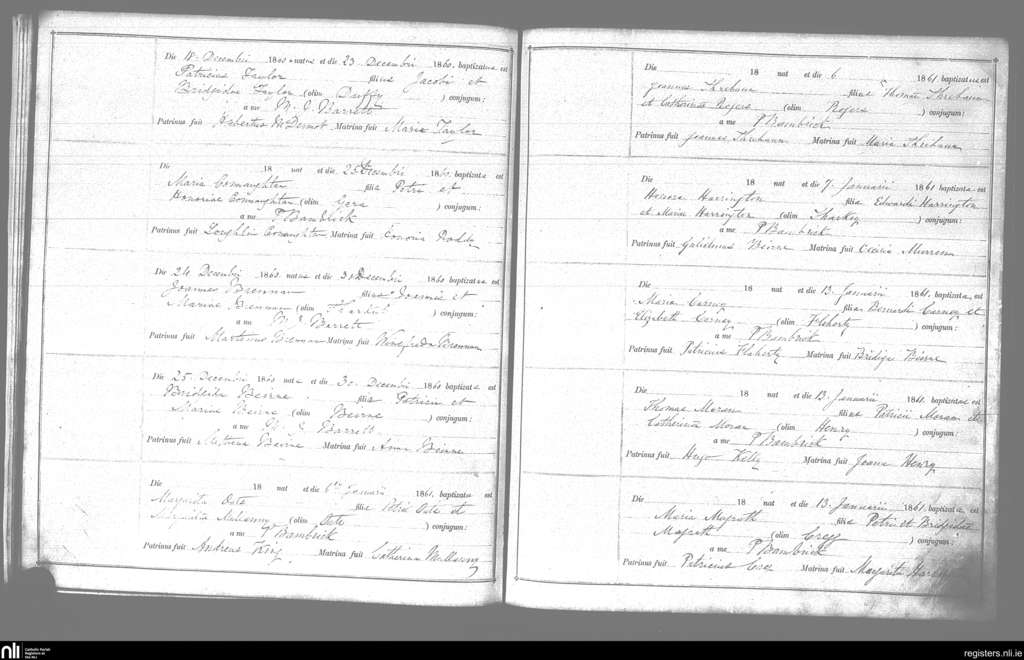 Die 18 Decembri 1860 natus et die 23 Decembri 1860. baptizatus est
Patricius Taylor filius Jacobi et
Bridgidae Taylor (olim Duffy ) conjugum:
a me M. E. Barrett
Patrinus fuit Hubertus McDermot Matrina fuit Maria Taylor
Die 18 nat et die 25 Decembri 1860. baptizata est
Maria Connaughton filia Petri et
Honoriae Connaughton (olim ) conjugum:
a me P Bambrick
Patrinus fuit Loughlin Connaughton Matrina fuit Honoria Roddy
Die 24 Decembri 1860 natus et die 30 Decembri 1860 baptizatus est
Joannes Brennan filius Joannis et
Mariae Brennan (olim ) conjugum:
a me M. E. Barrett
Patrinus fuit Martinus Brennan Matrina fuit Winefreda Brennan
Die 25 Decembri 1860 nata et die 30 Decembri 1860 baptizata est
Bridgida Beirne filia Patricii et
Mariae Beirne (olim Beirne ) conjugum:
a me M. E. Barrett
Patrinus fuit Beirne Matrina fuit Anna Beirne
Die 18 nat et die 6 Januarii 1861. baptizata est
Margarita filia Petri et
Margarita (olim ) conjugum:
a me P Bambrick
Patrinus fuit Andreas King Matrina fuit Catherina Mullanny
Die 18 nat et die 6 1861 baptizatus est
Joannes filius Thomae
et Catherinae Rogers (olim Rogers ) conjugum:
a me P Bambrick
Patrinus fuit Joannes Matrina fuit Maria
Die 18 nat et die 7 Januarii 1861 baptizata est
Harrington filia Edwardi Harrington
et Maria Harrington (olim Sharkey ) conjugum:
a me P Bambrick
Patrinus fuit Gulielmus Beirne Matrina fuit Cecilia
Die 18 nat et die 13. Januarii 1861. baptizata est
Maria Carney filia Bernardi Carney et
Elizabeth Carney (olim Flaherty ) conjugum:
a me P Bambrick
Patrinus fuit Patricius Flaherty Matrina fuit Bridget Beirne
Die 18 nat et die 13. Januarii 1861. baptizatus est
Thomas Moran filius Patricii Moran et
Catherina Moran (olim Henry ) conjugum:
a me P Bambrick
Patrinus fuit Hugo Kelly Matrina fuit Joanna Henry
Die 18 nat et die 13. Januarii 1861. baptizata est
Maria filia Petri et Bridgidae
(olim ) conjugum:
a me P Bambrick
Patrinus fuit Patricius Matrina fuit Margarita
nli Catholic Parish Registers at the NLI
registers.nli.ie